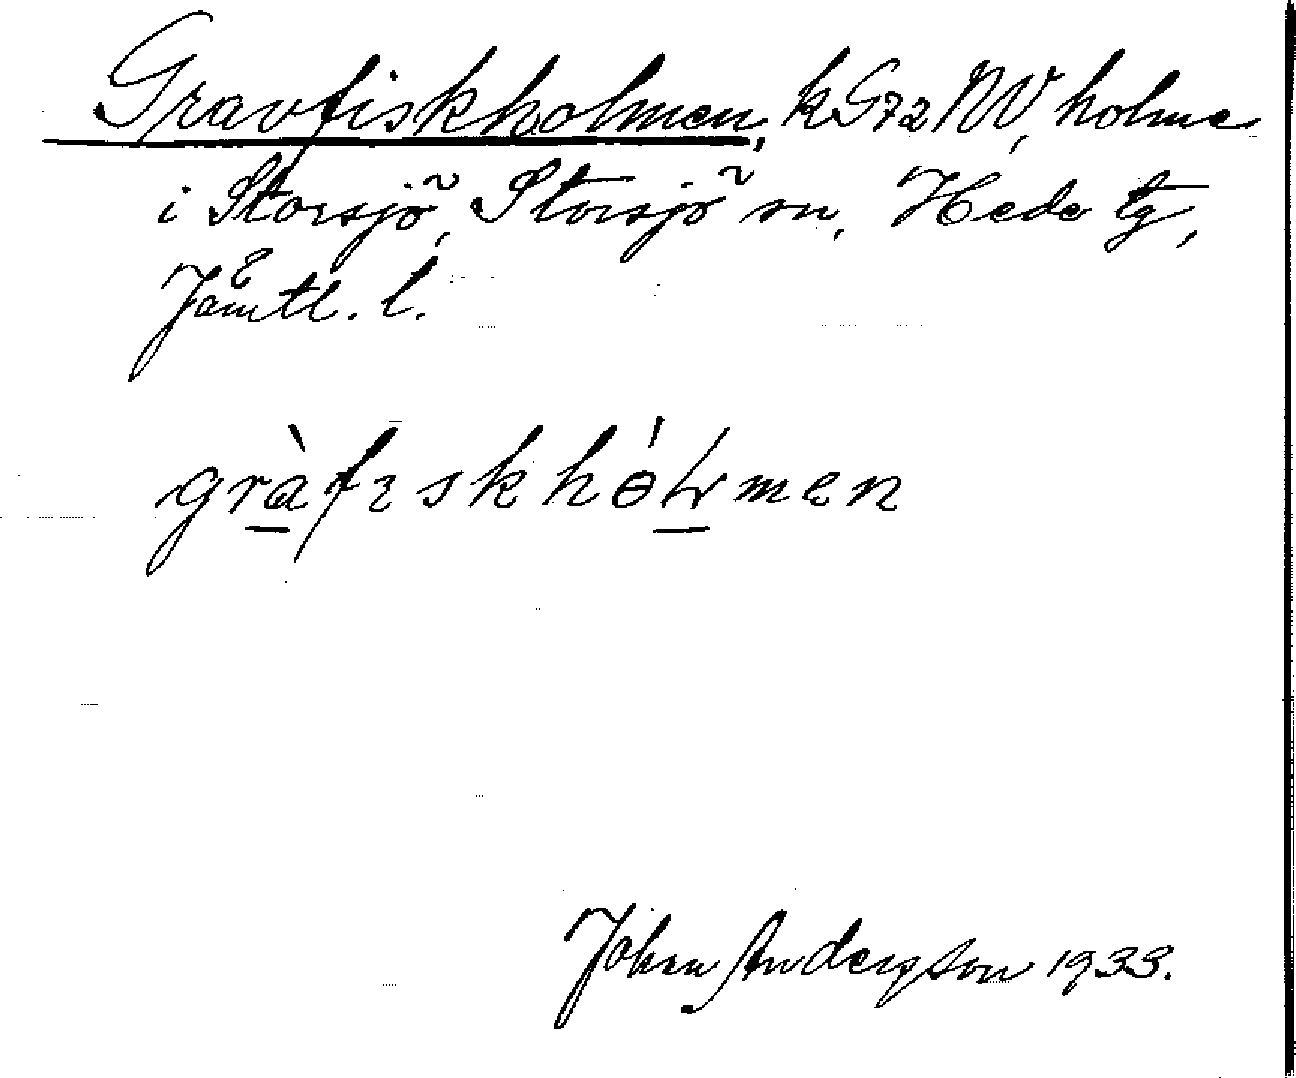 Gravfiskholmen, k G72 NV, holme
i Storsjö, Storsjö sn, Hede tg,
Jämtl. l.
gràfɪskhólmen
Johan Anderson 1933.